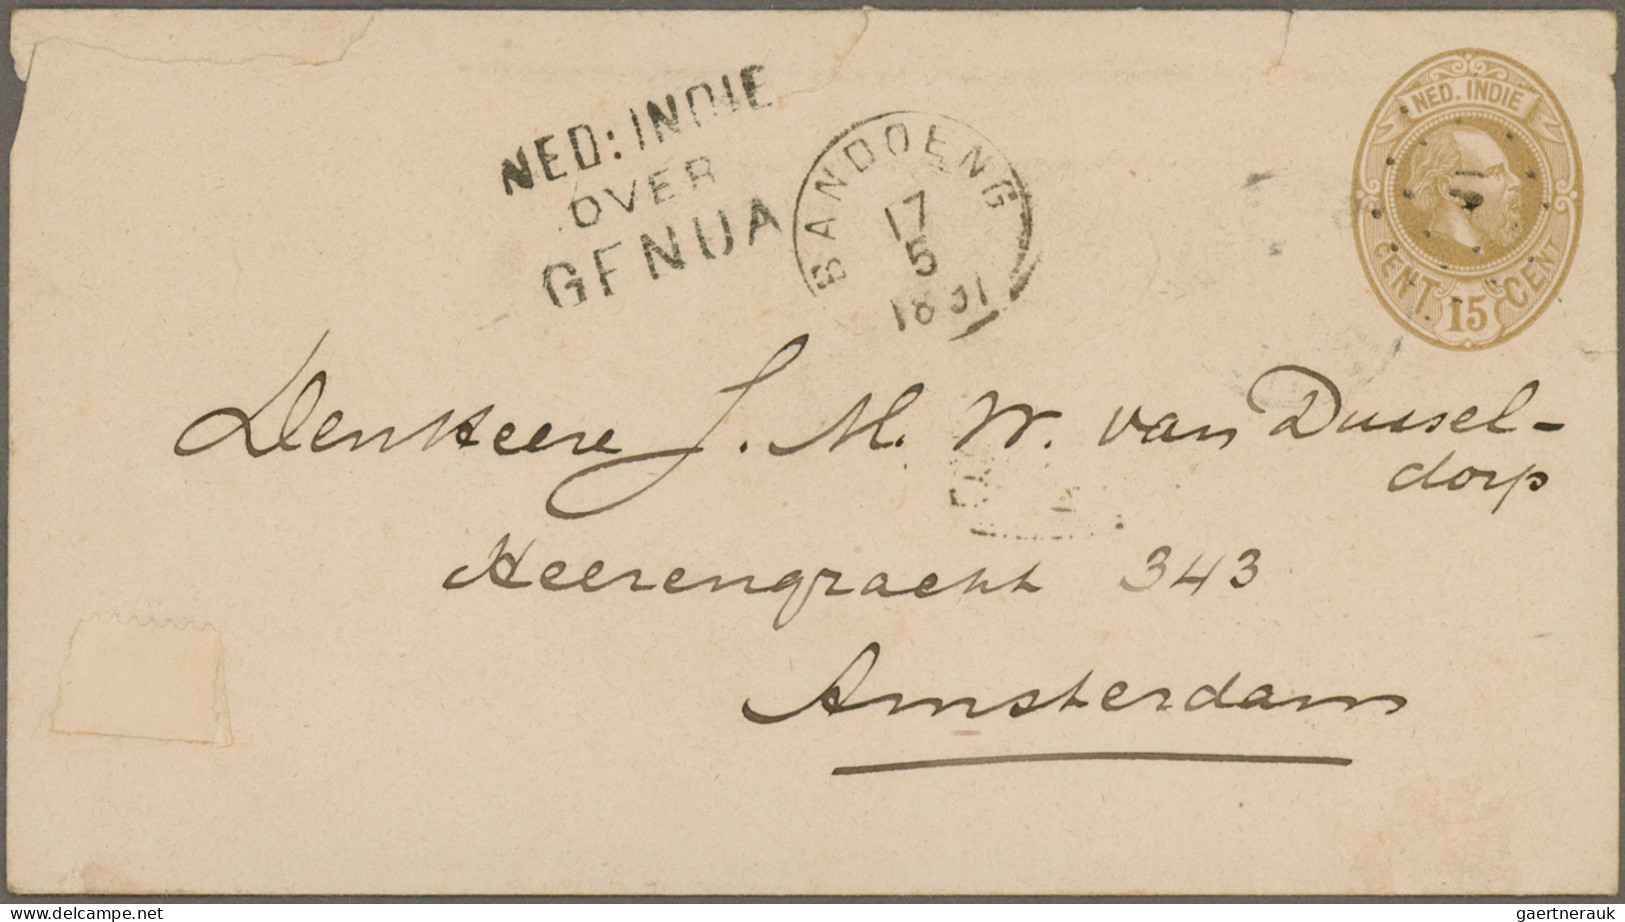 NED: INDIE
OVER
GENUA
BANDOENG
17
5
1891
NED. INDIE
CENT. 15 CENT
Den Heere J. M. W. van Dussel-
dorp
Heerengracht 343
Amsterdam
www.delcampe.net
gaertnerauk